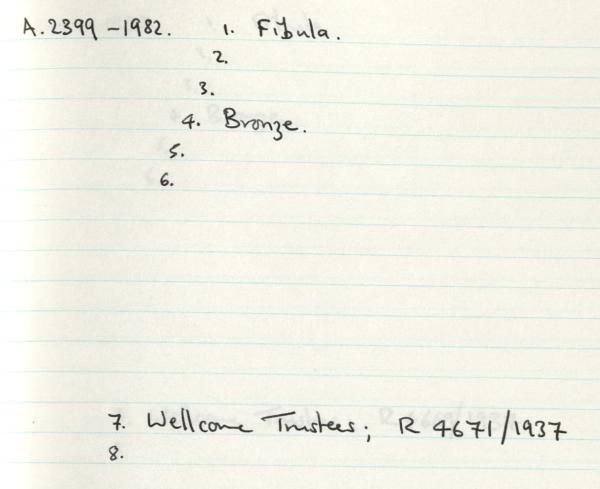 A.2399-1982. 1. Fibula.
2.
3.
4. Bronze.
5.
6.
7. Wellcome Trustees; R 4671/1937
8.